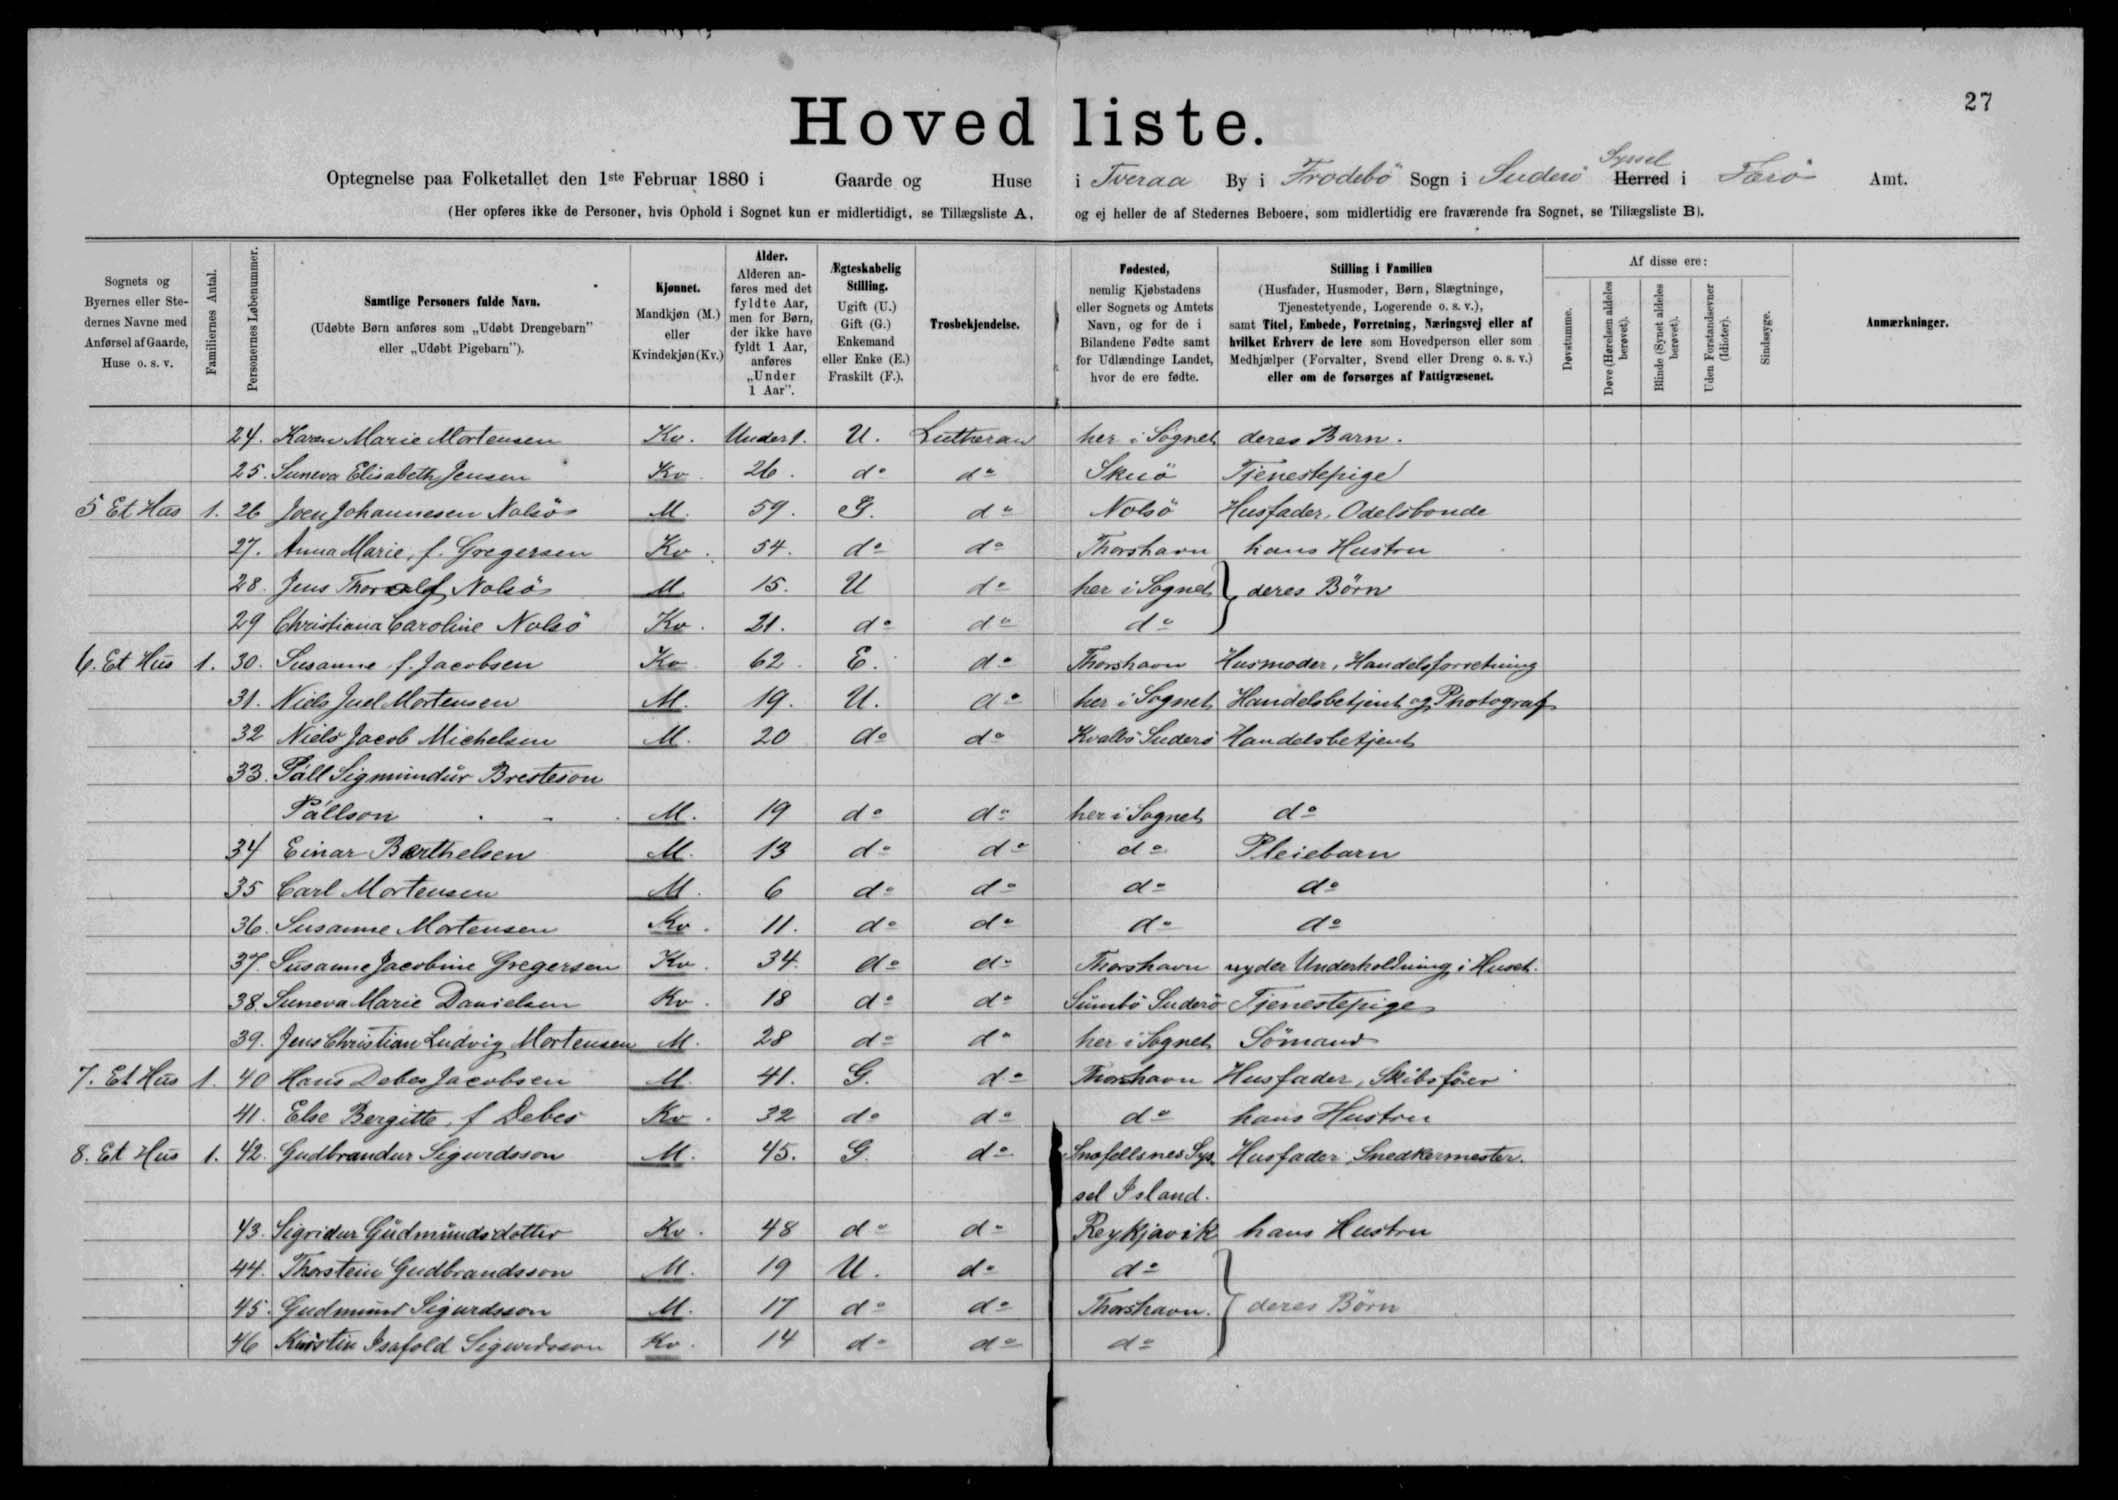 27
Hovedliste.
Optegnelse paa Folketallet den 1ste Februar 1880 i Gaarde og Huse i Tveraa By i Frodebö Sogn i Suderö Syssel Herred i Færö Amt.
(Her opføres ikke de Personer, hvis Ophold i Sognet kun er midlertidigt, se Tillægsliste A, og ej heller de af Stedernes Beboere, som midlertidig ere fraværende fra Sognet, se Tillægsliste B).
Sognets og Byernes eller Stedernes Navne med Anførsel af Gaarde, Huse o. s. v.
Familiernes Antal.
Personernes Løbenummer.
Samtlige Personers fulde Navn.
(Udøbte Børn anføres som „Udøbt Drengebarn" eller „Udøbt Pigebarn").
Kjønnet.
Mandkjøn (M.) eller Kvindekjøn (Kv.)
Alder.
Alderen anføres med det fyldte Aar, men for Børn, der ikke have fyldt 1 Aar, anføres „Under 1 Aar".
Ægteskabelig Stilling.
Ugift (U.) Gift (G.) Enkemand eller Enke (E.) Fraskilt (F.).
Trosbekjendelse.
Fødested,
nemlig Kjøbstadens eller Sognets og Amtets Navn, og for de i Bilandene Fødte samt for Udlændinge Landet, hvor de ere fødte.
Stilling i Familien
(Husfader, Husmoder, Børn, Slægtninge, Tjenestetyende, Logerende o. s. v.),
samt Titel, Embede, Forretning, Næringsvej eller af hvilket Erhverv de leve som Hovedperson eller som Medhjælper (Forvalter, Svend eller Dreng o. s. v.) eller om de forsørges af Fattigvæsenet.
Af disse ere:
Døvstumme.
Døve (Hørelsen aldeles berøvet).
Blinde (Synet aldeles berøvet).
Uden Forstandsevner (Idioter).
Sindssyge.
Anmærkninger.
24. Karen Marie Mortensen Kv. Under 1. U. Lutheran her i Sognet deres Barn.
25. Suneva Elisabeth Jensen Kv. 26. do do Skuö Tjenestepige
5 Et Hus 1. 26 Joen Johannesen Nolsö M. 59. G. do Nolsö Husfader, Odelsbonde
27. Anna Marie, f. Gregersen Kv. 54. do do Thorshavn hans Hustru
28. Jens Thorvald Nolsö M 15. U do her i Sognet deres Börn
29 Christiana Caroline Nolsö Kv. 21. do do do
6. Et Hus 1. 30. Susanne f. Jacobsen Kv 62 E. do Thorshavn Husmoder, Handelsforretning
31. Niels Juel Mortensen M. 19. U. do her i Sognet Handelsbetjent og Photograf
32 Niels Jacob Michelsen M. 20 do do Kvalbö Suderö Handelsbetjent
33. Páll Sigmundur Bresteson
Pállson M. 19 do do her i Sognet do
34 Einar Barthelsen M. 13 do do do Pleiebarn
35 Carl Mortensen M. 6 do do do do
36. Susanne Mortensen Kv. 11. do do do do
37. Susanne Jacobine Gregersen Kv. 34. do do Thorshavn nyder Underholdning i Huset.
38. Suneva Marie Danielsen Kv. 18 do do Sumbö Suderö Tjenestepige
39. Jens Christian Ludvig Mortensen M. 28 do do her i Sognet Sömand
7. Et Hus 1. 40 Hans Debes Jacobsen M. 41. G. do Thorshavn Husfader, Skibsförer
41. Else Bergitte, f Debes Kv. 32 do do do hans Hustru
8. Et Hus 1. 42. Gudbrandur Sigurdsson M. 45. G. do Snæfellsnes Sys Husfader, Snedkermester.
sel Island.
43. Sigridur Gudmundsdotter Kv. 48 do do Reykjavik hans Hustru
44. Thorstein Gudbrandsson M. 19 U. do do
45. Gudmund Sigurdsson M. 17 do do Thorshavn. deres Börn
46 Kirstin Isafold Sigurdsson Kv. 14 do do do